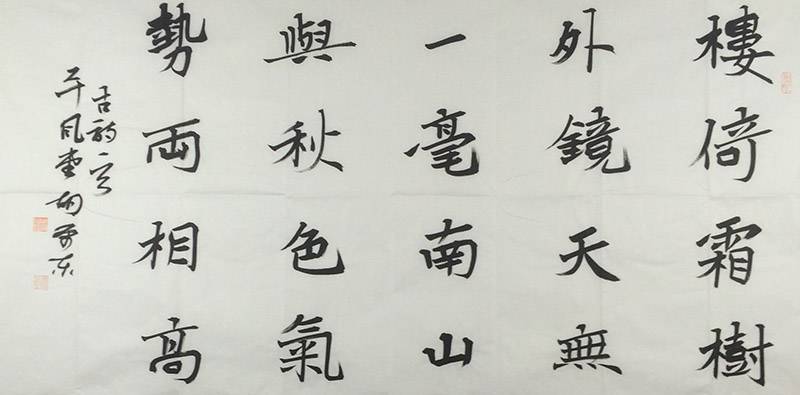 樓倚霜樹
外鏡天無
一毫南山
與秋色氣
勢兩相高
古詩一首